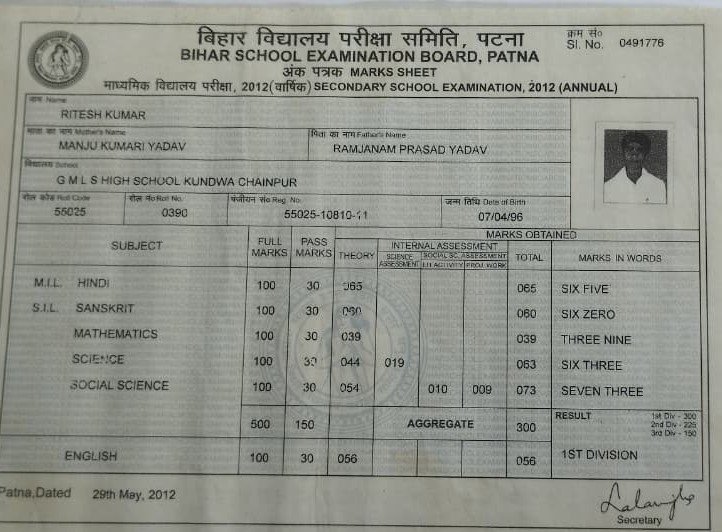 बिहार विद्यालय परीक्षा समिति, पटना
क्रम सं०
BIHAR SCHOOL EXAMINATION BOARD, PATNA
Sl. No. 0491776
अंक पत्रक MARKS SHEET
माध्यमिक विद्यालय परीक्षा, 2012(वार्षिक) SECONDARY SCHOOL EXAMINATION, 2012 (ANNUAL)
नाम Name
RITESH KUMAR
माता का नाम Mother's Name पिता का नाम Father's Name
MANJU KUMARI YADAV RAMJANAM PRASAD YADAV
विद्यालय School
G M L S HIGH SCHOOL KUNDWA CHAINPUR
रोल कोड Roll Code रोल नं० Roll No. पंजीयन सं० Reg. No. जन्म तिथि Date of Birth
55025 0390 55025-10810-11 07/04/96
SUBJECT FULL MARKS PASS MARKS MARKS OBTAINED
THEORY INTERNAL ASSESSMENT TOTAL MARKS IN WORDS
SCIENCE ASSESSMENT SOCIAL SC. ASSESSMENT
LIT ACTIVITY PROJ. WORK
M.I.L. HINDI 100 30 065 065 SIX FIVE
S.I.L. SANSKRIT 100 30 060 060 SIX ZERO
MATHEMATICS 100 30 039 039 THREE NINE
SCIENCE 100 30 044 019 063 SIX THREE
SOCIAL SCIENCE 100 30 054 010 009 073 SEVEN THREE
500 150 AGGREGATE 300 RESULT 1st Div - 300
2nd Div - 225
3rd Div - 150
ENGLISH 100 30 056 056 1ST DIVISION
Patna,Dated 29th May, 2012
Secretary